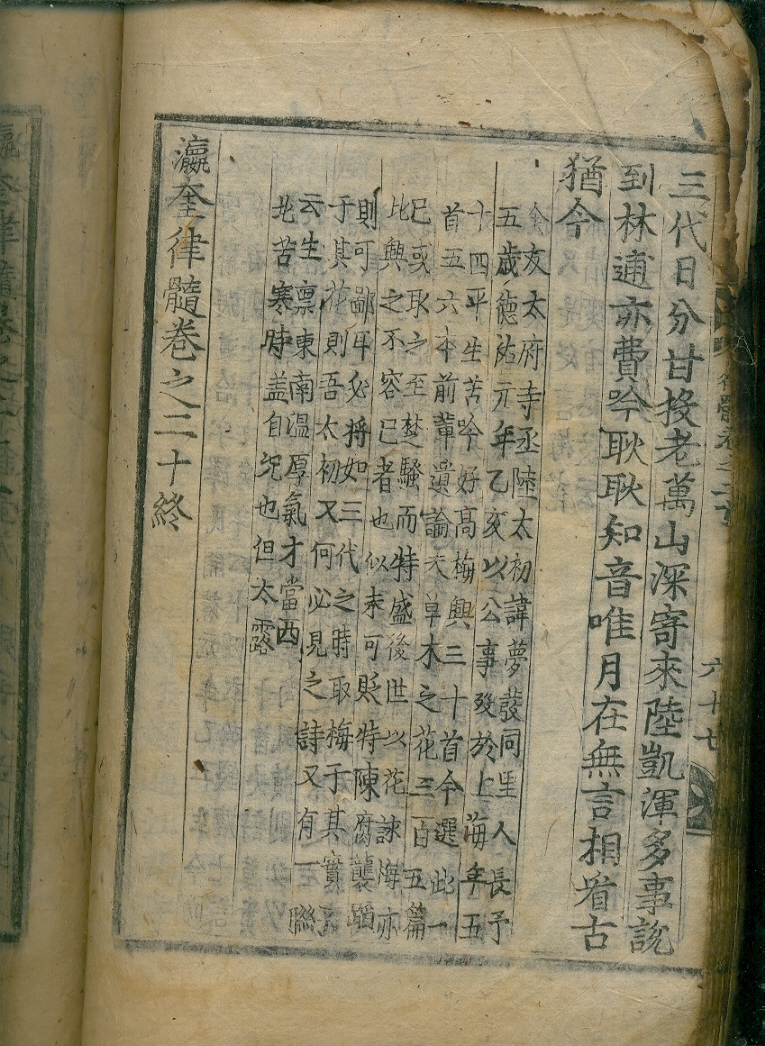 三代日分甘投老萬山深寄來陸凱渾多事說
到林逋亦費吟耿耿知音唯月在無言相看古
猶今
友太府寺丞陸太初諱夢發同里人長予
五歲德祐元年乙亥以公事歿於上海年五
十四平生苦吟好高梅興三十首今選此一
首五六本前輩遺論夫草木之花三百五篇
已或取之至楚騷而特盛後世以花詠梅亦
比興之不容已者也似未可貶特陳腐襲蹈
則可鄙耳必將如三代之時取梅于其實
于其花則吾太初又何必見之詩又有一聯
云生禀東南溫厚氣才當西
北苦寒時盖自况也但太露
瀛奎律髓卷之二十終
律髓卷之二十
六十七